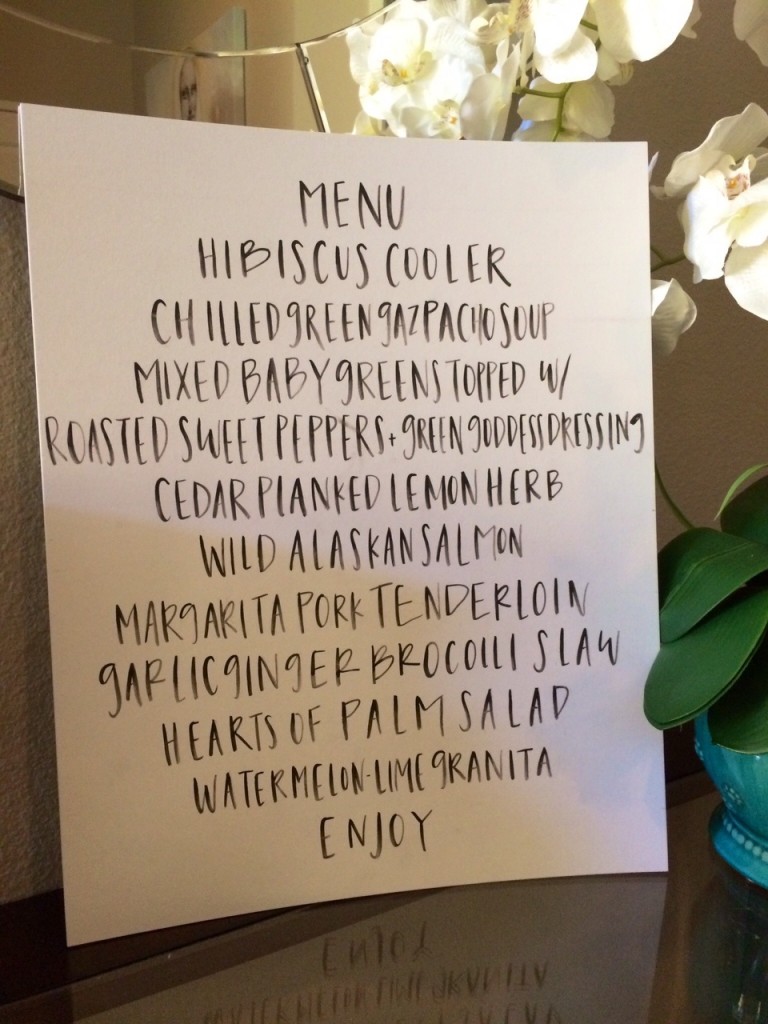 MENU
HIBISCUS COOLER
CHILLED GREEN GAZPACHO SOUP
MIXED BABY GREENS TOPPED W/
ROASTED SWEET PEPPERS + GREEN GODDESS DRESSING
CEDAR PLANKED LEMON HERB
WILD ALASKAN SALMON
MARGARITA PORK TENDERLOIN
GARLIC GINGER BROCOLLI SLAW
HEARTS OF PALM SALAD
WATERMELON-LIME GRANITA
ENJOY